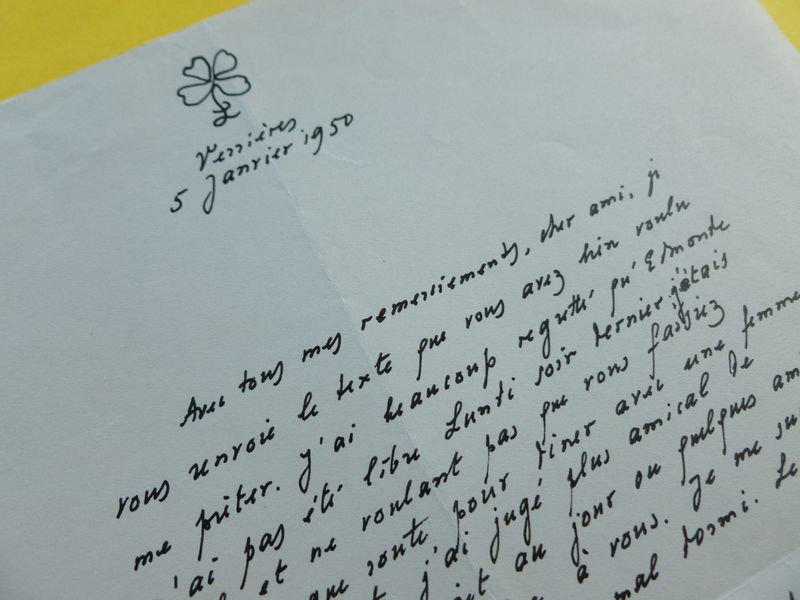 L
Verrières
5 Janvier 1950
Avec tous mes remerciements, cher ami, je
vous renvoie le texte que vous avez bien voulu
me prêter. J'ai beaucoup regretté qu'Edmonde
n'ai pas été libre Lundi soir dernier j'étais
et ne voulant pas que vous fassiez
que route, pour diner avec une femme
j'ai jugé plus amical de
au jour où quelques am
à vous. Je me su
mal dormi. Le